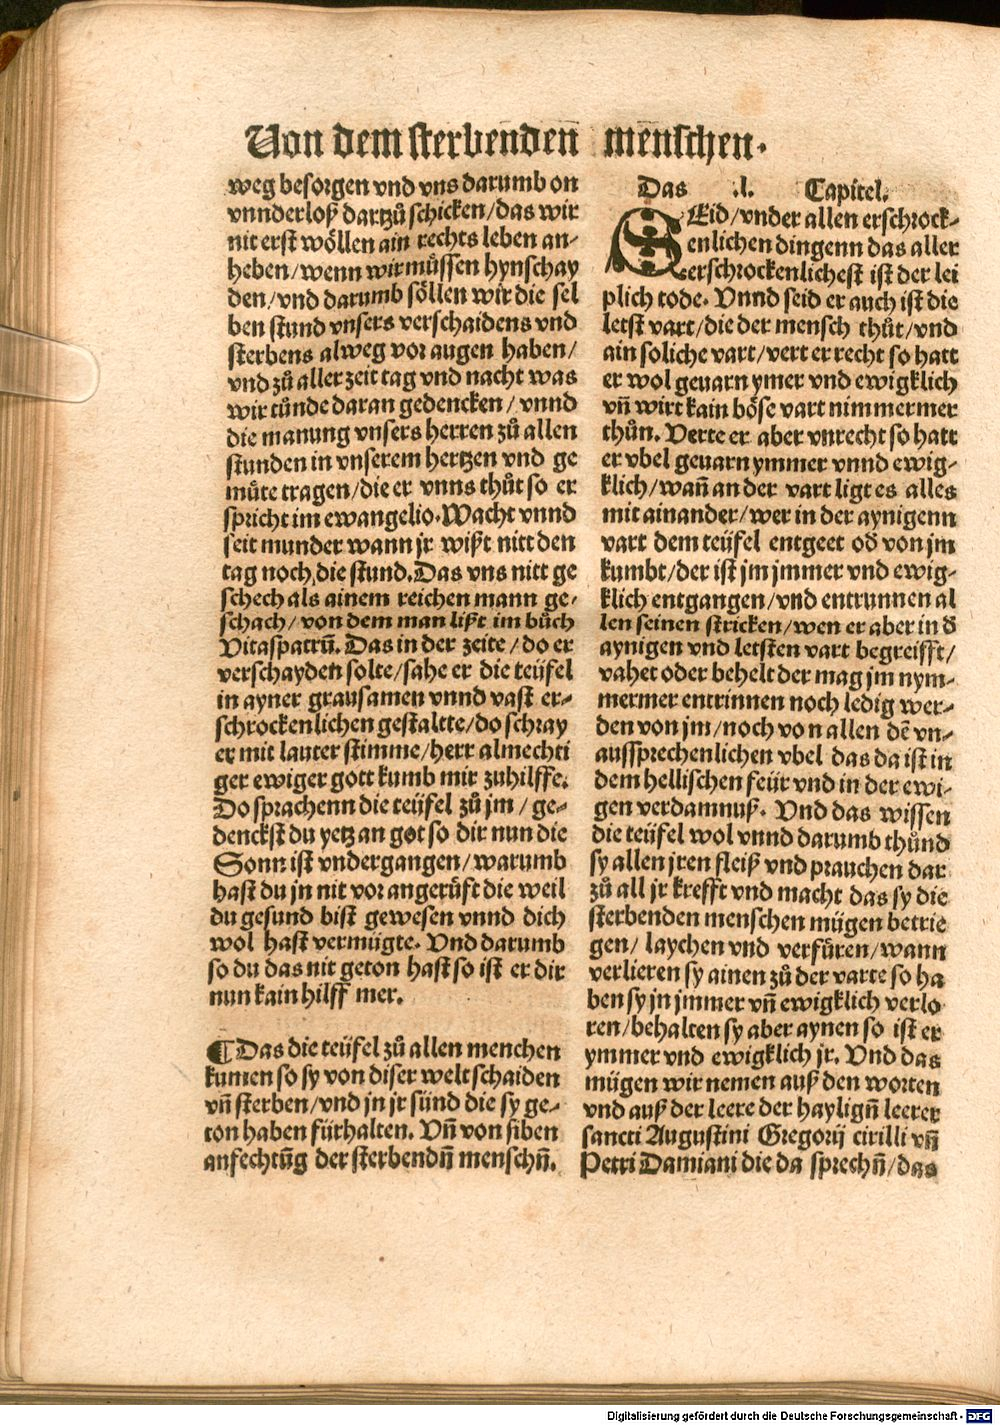 Von dem sterbenden menschen.
weg besorgen vnd vns darumb on
vnnderloß dartzů schicken/das wir
nit erst wöllen ain rechts leben an⸗
heben/wenn wir můssen hynschay
den/vnd darumb söllen wir die sel
ben stund vnsers verschaidens vnd
sterbens alweg vor augen haben/
vnd zů aller zeit tag vnd nacht was
wir tůnde daran gedencken/vnnd
die manung vnsers herren zů allen
stunden in vnserem hertzen vnd ge
můte tragen/die er vnns thůt so er
spricht im ewangelio. Wacht vnnd
seit munder wann jr wißt nitt den
tag noch die stund. Das vns nitt ge
schech als ainem reichen mann ge⸗
schach/von dem man lißt im bůch
Vitaspatrū. Das in der zeite/do er
verschayden solte/sahe er die teüfel
in ayner grausamen vnnd vast er⸗
schrockenlichen gestaltte/do schray
er mit lauter stimme/herr almechti
ger ewiger gott kumb mir zuhilffe.
Do sprachenn die teüfel zů jm/ge⸗
denckst du yetz an got so dir nun die
Sonn ist vndergangen/warumb
hast du jn nit vor angerůft die weil
du gesund bist gewesen vnnd dich
wol hast vermügte. Vnd darumb
so du das nit geton hast so ist er dir
nun kain hilff mer.
¶ Das die teüfel zů allen menchen
kumen so sy von diser welt schaiden
vñ sterben/vnd jn jr sünd die sy ge⸗
ton haben fürhalten. Vñ von siben
anfechtūg der sterbendñ menschñ.
Das .l. Capitel.
SEid/vnder allen erschrock⸗
enlichen dingenn das aller
erschrockenlichest ist der lei
plich tode. Vnnd seid er auch ist die
letst vart/die der mensch thůt/vnd
ain soliche vart/vert er recht so hatt
er wol geuarn ymer vnd ewigklich
vñ wirt kain böse vart nimmermer
thůn. Verte er aber vnrecht so hatt
er vbel geuarn ymmer vnnd ewig⸗
klich/wañ an der vart ligt es alles
mit ainander/wer in der aynigenn
vart dem teüfel entgeet oď von jm
kumbt/der ist jm jmmer vnd ewig⸗
klich entgangen/vnd entrunnen al
len seinen stricken/wen er aber in ď
aynigen vnd letsten vart begreifft/
vahet oder behelt der mag jm nym⸗
mermer entrinnen noch ledig wer⸗
den von jm/noch von allen dē vn⸗
aussprechenlichen vbel das da ist in
dem hellischen feür vnd in der ewi⸗
gen verdamnuß. Vnd das wissen
die teüfel wol vnnd darumb thůnd
sy allen jren fleiß vnd prauchen dar
zů all jr krefft vnd macht das sy die
sterbenden menschen mügen betrie
gen/laychen vnd verfüren/wann
verlieren sy ainen zů der varte so ha
ben sy jn jmmer vñ ewigklich verlo
ren/behalten sy aber aynen so ist er
ymmer vnd ewigklich jr. Vnd das
mügen wir nemen auß den worten
vnd auß der leere der hayligñ leerer
sancti Augustini Gregorij cirilli vñ
Petri Damiani die da sprechñ/das
Digitalisierung gefördert durch die Deutsche Forschungsgemeinschaft - DFG